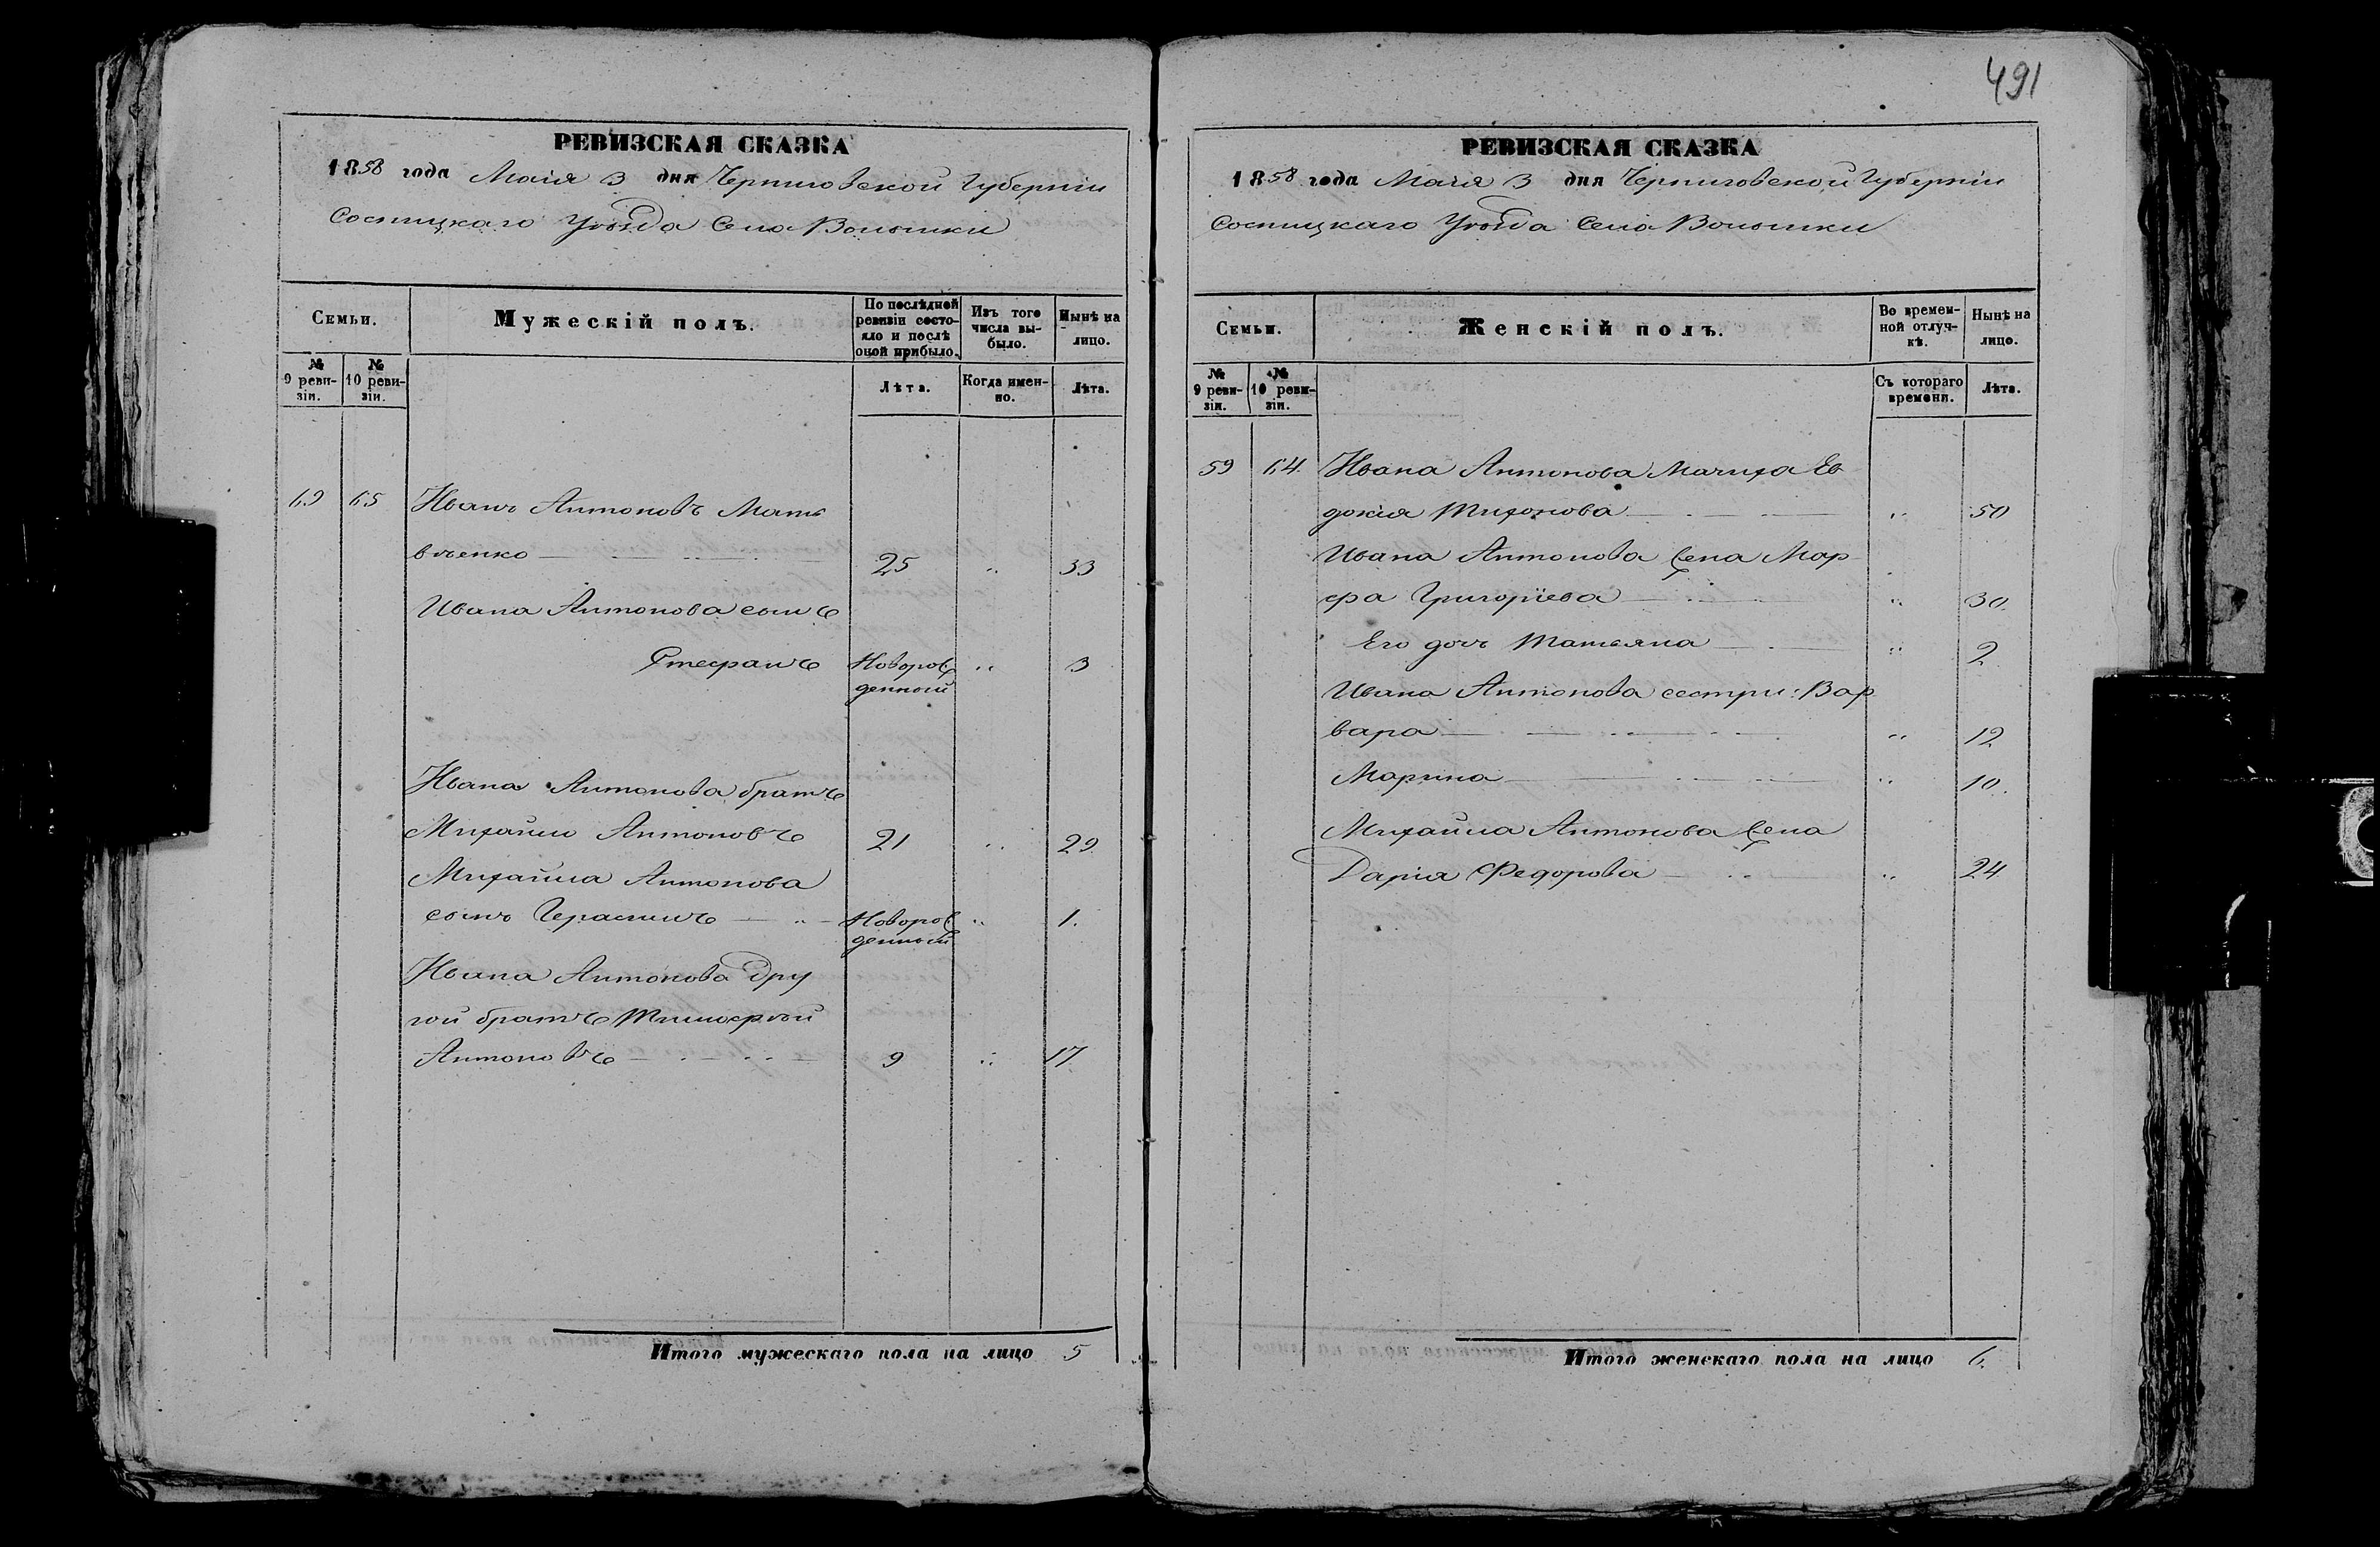 491
РЕВИЗСКАЯ СКАЗКА
1858 года Маія 3 дня Черниговской Губерніи
Сосницкаго Уѣзда Села Волынки
Семьи.
Мужескій полъ.
По послѣдней ревизіи состояло и послѣ оной прибыло.
Изъ того числа выбыло.
Нынѣ на лицо.
№ 9 ревизіи.
№ 10 ревизіи.
Лѣта.
Когда именно.
Лѣта.
69 65 Иванъ Антоновъ Мать
вѣенко 25 " 33
Ивана Антонова сынъ
Стефанъ Новорож
денный " 3
Ивана Антонова братъ
Михайло Антоновъ 21 " 29
Михайла Антонова
сынъ Герасимъ Новорож
денный " 1.
Ивана Антонова дру
гой братъ Тимофѣй
Антоновъ 9 " 17
Итого мужескаго пола на лицо 5
РЕВИЗСКАЯ СКАЗКА
1858 года Маія 3 дня Черниговской Губерніи
Сосницкаго Уѣзда Села Волынки
Семьи.
Женскій полъ.
Во временной отлучкѣ.
Нынѣ на лицо.
№ 9 ревизіи.
№ 10 ревизіи.
Съ котораго времени.
Лѣта.
59 64 Ивана Антонова Мачиха Ев
докія Тихонова " 50
Ивана Антонова Жена Мар
фа Григоріева " 30.
Его дочь Татьяна " 2
Ивана Антонова сестры: Вар
вара " 12
Марина " 10.
Михайла Антонова Жена
Дарія Федорова " 24
Итого женскаго пола на лицо 6.